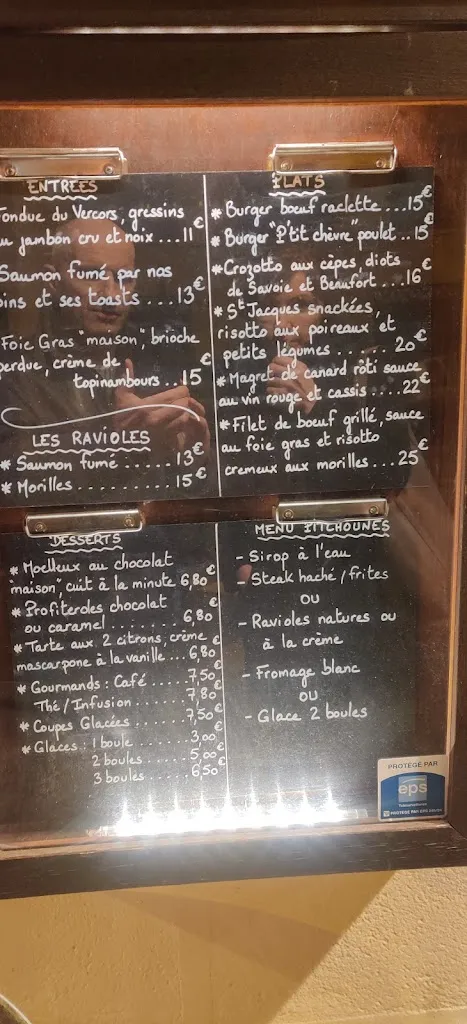 ENTRÉES
Fondue du Vercors, gressins
au jambon cru et noix ... 11 €
Saumon fumé par nos
soins et ses toasts ... 13€
Foie Gras "maison", brioche
perdue, crème de
topinambours .. 15 €
LES RAVIOLES
* Saumon fumé ..... 13€
* Morilles ........ 15€
PLATS
* Burger boeuf raclette ... 15€
* Burger "P'tit chèvre" poulet .. 15€
* Crozotto aux cèpes, diots
de Savoie et Beaufort ... 16€
* St Jacques snackées,
risotto aux poireaux et
petits légumes ...... 20€
* Magret de canard rôti sauce
au vin rouge et cassis .... 22€
* Filet de boeuf grillé, sauce
au foie gras et risotto
cremeux aux morilles ... 25€
DESSERTS
* Moelleux au chocolat
"maison", cuit à la minute 6,80 €
* Profiteroles chocolat
ou caramel ........ 6,80 €
* Tarte aux 2 citrons, crème
mascarpone à la vanille ... 6,80 €
* Gourmands : Café .... 7,50 €
Thé / Infusion .... 7,80 €
* Coupes Glacées ...... 7,50 €
* Glaces : 1 boule ..... 3,00 €
2 boules ..... 5,00 €
3 boules ..... 6,50 €
MENU PITCHOUNES
- Sirop à l'eau
- Steak haché / frites
OU
- Ravioles natures ou
à la crème
- Fromage blanc
OU
- Glace 2 boules
PROTÉGÉ PAR
eps